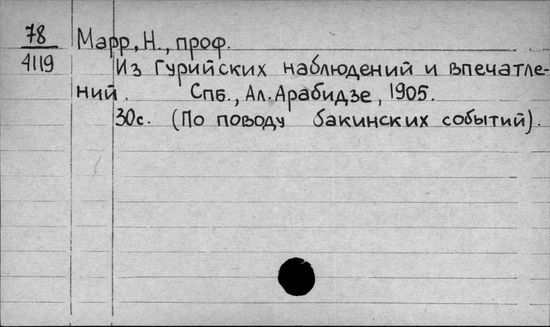 78
4119
Марр, Н., проф.
Из Гурийских наблюдений и впечатле-
ний. Спб., Ал. Арабидзе, 1905.
30с. (По поводу бакинских событий).